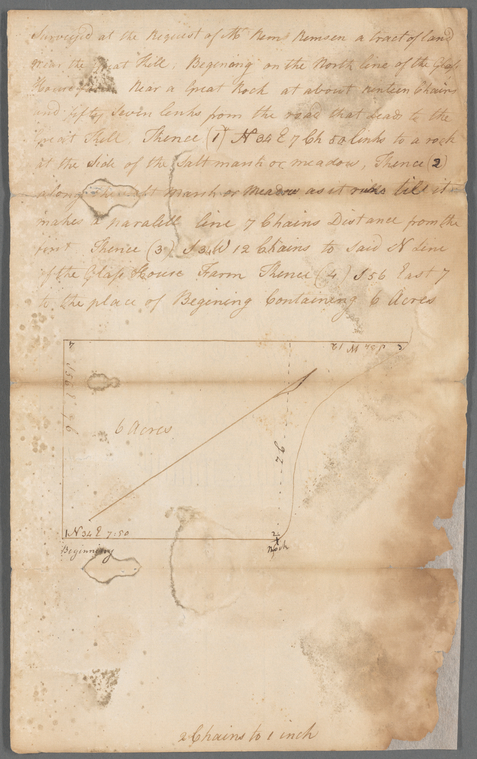 Surveyed at the Request of Mr Rem Remsen a tract of land
near the Great Kill. Begening on the North line of the Glass
House Near a Great Rock at about Chains
and fifty Seven links from the road that lead to the
Great Kill, Thence (1) N 34 E 7 Ch 50 links to a rock
at the Side of the Salt marsh or meadow, Thence (2)
along Salt marsh or Meadow as it till it
makes a paralell line 7 Chains Distance from the
first Thence (3) S 34 W 12 Chains to Said N line
of the Glass House Farm Thence (4) S 56 East 7
to the place of Begining Containing 6 Acres
4 S 34 W 12
6 Acres
1 N 34 E 7·50 2
Beginning Rock
2 Chains to 1 inch